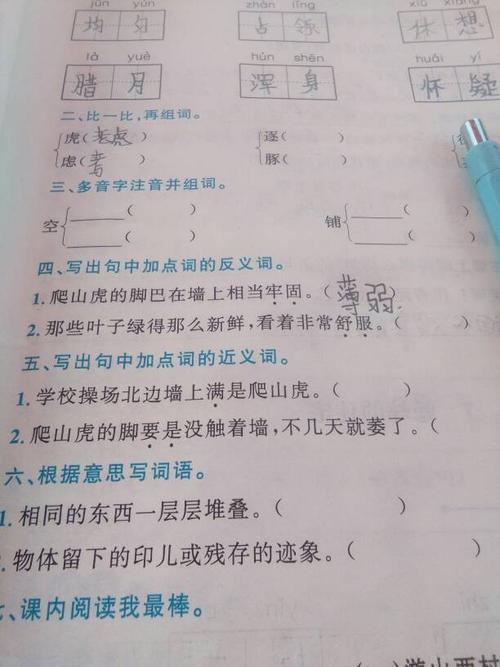 jūn yún zhàn lǐng xiū xiǎng
均匀 占领 休想
là yuè hún shēn huái yí
腊月 浑身 怀疑
二、比一比,再组词。
虎( ) 逐( )
虑( ) 豚( )
三、多音字注音并组词。
空 ( ) 铺 ( )
( ) ( )
四、写出句中加点词的反义词。
1.爬山虎的脚巴在墙上相当牢固。(薄弱)
2.那些叶子绿得那么新鲜,看着非常舒服。( )
五、写出句中加点词的近义词。
1.学校操场北边墙上满是爬山虎。( )
2.爬山虎的脚要是没触着墙,不几天就萎了。(
六、根据意思写词语。
1.相同的东西一层层堆叠。( )
物体留下的印儿或残存的迹象。( )
七、课内阅读我最棒。